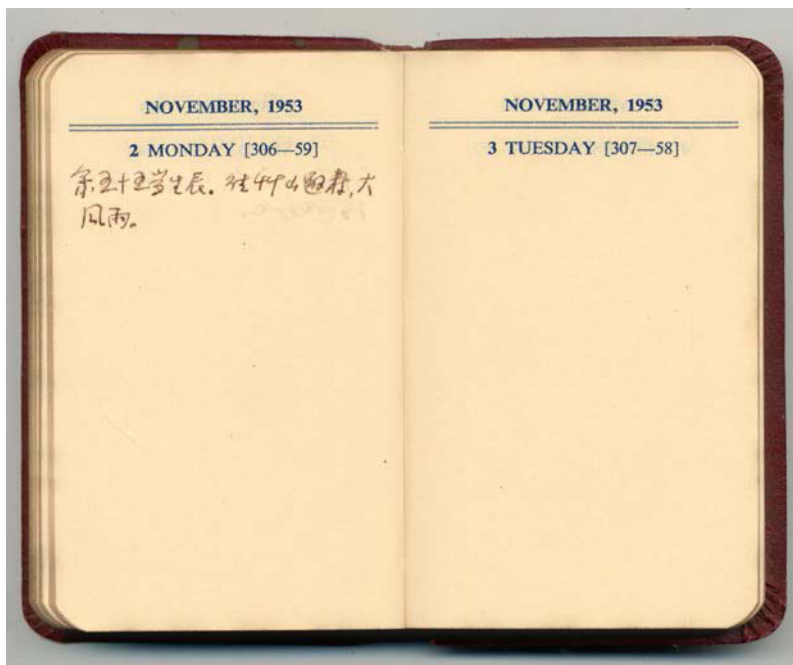 NOVEMBER, 1953
2 MONDAY [306—59]
余五十五岁生辰。往竹山避寿,大
风雨。
NOVEMBER, 1953
3 TUESDAY [307—58]